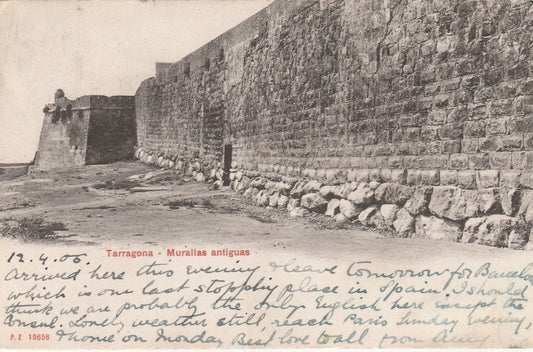 Tarragona - Murallas antiguas
12.4.06.
Arrived here this evening & leave tomorrow for Barcelona
which is our last stopping place in Spain I should
think we are probably the only English here except the
Consul. Lovely weather still, reach Paris Sunday evening,
& home on Monday Best love to all from
P.Z 10656